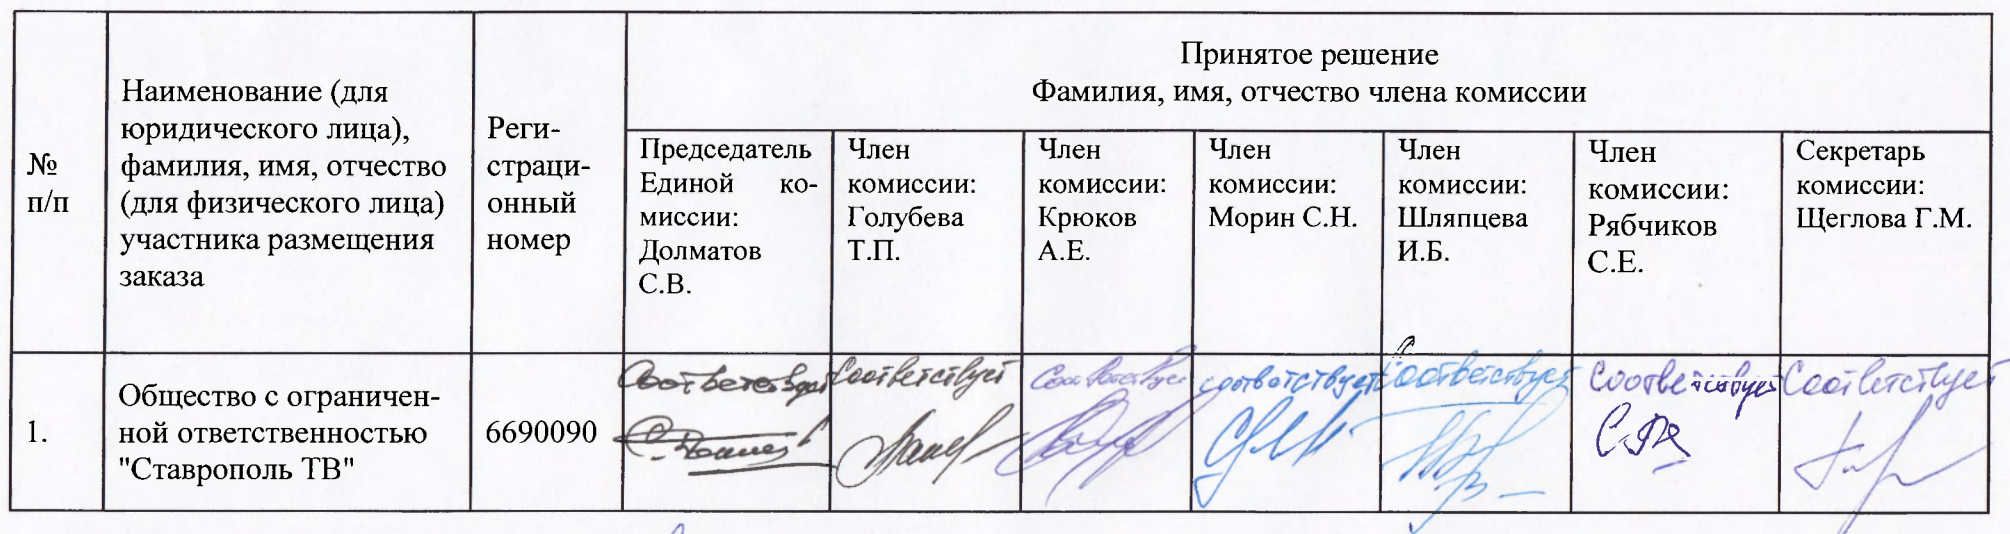 №
п/п
Наименование (для
юридического лица),
фамилия, имя, отчество
(для физического лица)
участника размещения
заказа
Реги-
страци-
онный
номер
Принятое решение
Фамилия, имя, отчество члена комиссии
Председатель
Единой ко-
миссии:
Долматов
С.В.
Член
комиссии:
Голубева
Т.П.
Член
комиссии:
Крюков
А.Е.
Член
комиссии:
Морин С.Н.
Член
комиссии:
Шляпцева
И.Б.
Член
комиссии:
Рябчиков
С.Е.
Секретарь
комиссии:
Щеглова Г.М.
1.
Общество с ограничен-
ной ответственностью
"Ставрополь ТВ"
6690090
Соответствует
Соответствует
Соответствует
Соответствует
Соответствует
Соответствует
Соответствует